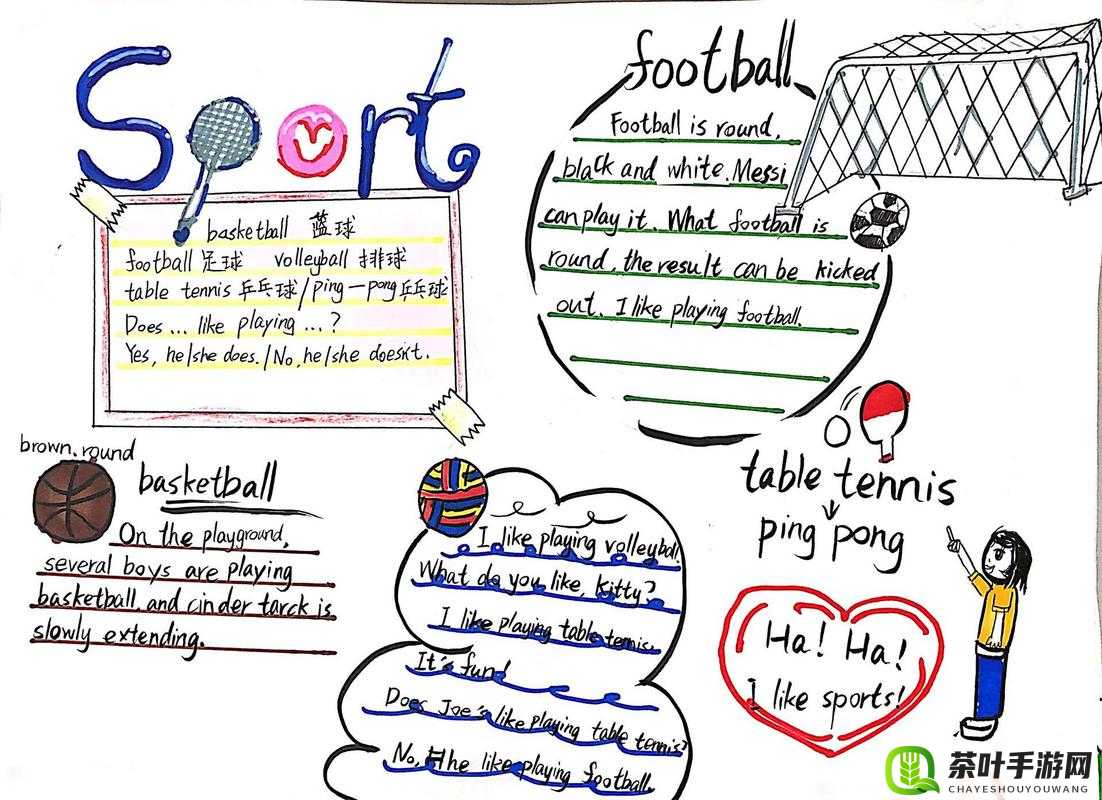 Sport
basketball 蓝球
football 足球 volleyball 排球
table tennis 乒乓球/ping-pong乒乓球
Does... like playing ...?
Yes, he/she does./No, he/she doesn't.
football
Football is round,
black and white. Messi
can play it. What football is
round, the result can be kicked
out. I like playing football.
brown. round
basketball
On the playground,
several boys are playing
basketball, and cinder tarck is
slowly extending.
I like playing volleyball.
What do you like, kitty?
I like playing table tennis.
It's fun!
Does Joe's like playing table tennis?
No, he like playing football.
table tennis
ping pong
Ha! Ha!
I like sports!
茶叶手游网
CHAYESHOUYOUWANG